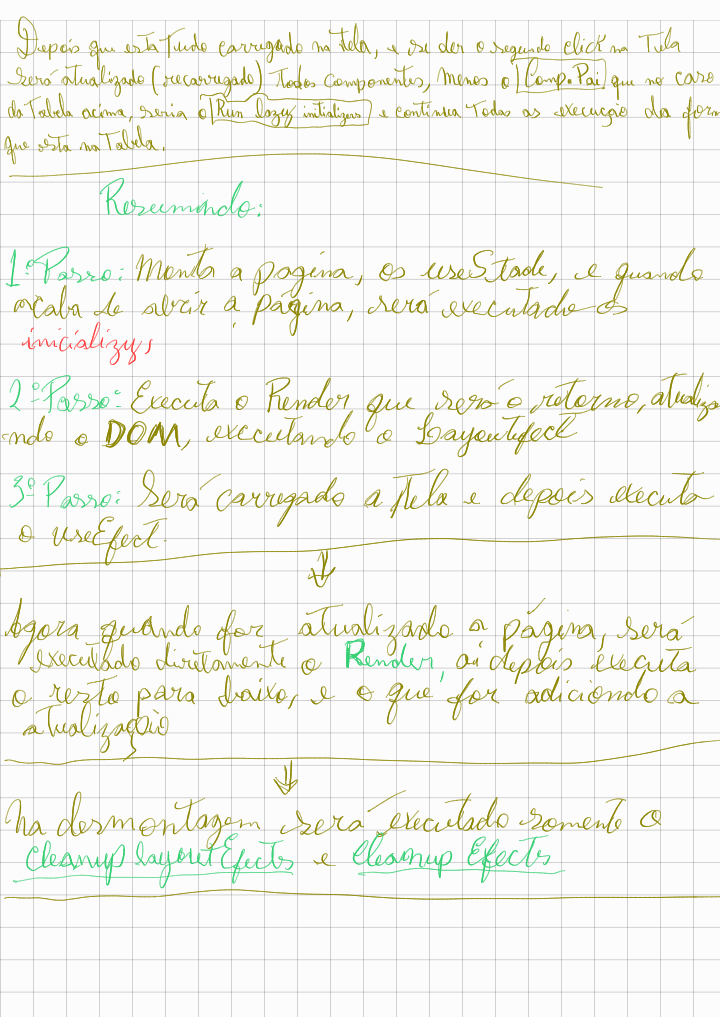 Depois que está tudo carregado na tela, e se der o segundo click na Tela
será atualizado (recarregado) Todos Componentes, menos o Comp. Pai que no caso
da Tabela acima, seria o Run lazy initializers e continua Todas as execução da form
que esta na Tabela.
Resumindo:
1º Passo: Monta a pagina, os useStade, e quando
acaba de abrir a página, será executado os
inicializy,
2º Passo: Executa o Render que será o retorno, atualiza
ndo o DOM, executando o LayoutEfect
3º Passo: Será carregado a tela e depois executa
o useEfect.
Agora quando for atualizado a página, será
executado diretamente o Render, ai depois executa
o resto para baixo, e o que for adiciondo a
atualização
Na desmontagem será executado somente o
Cleanup layoutEfects e Cleanup Efects